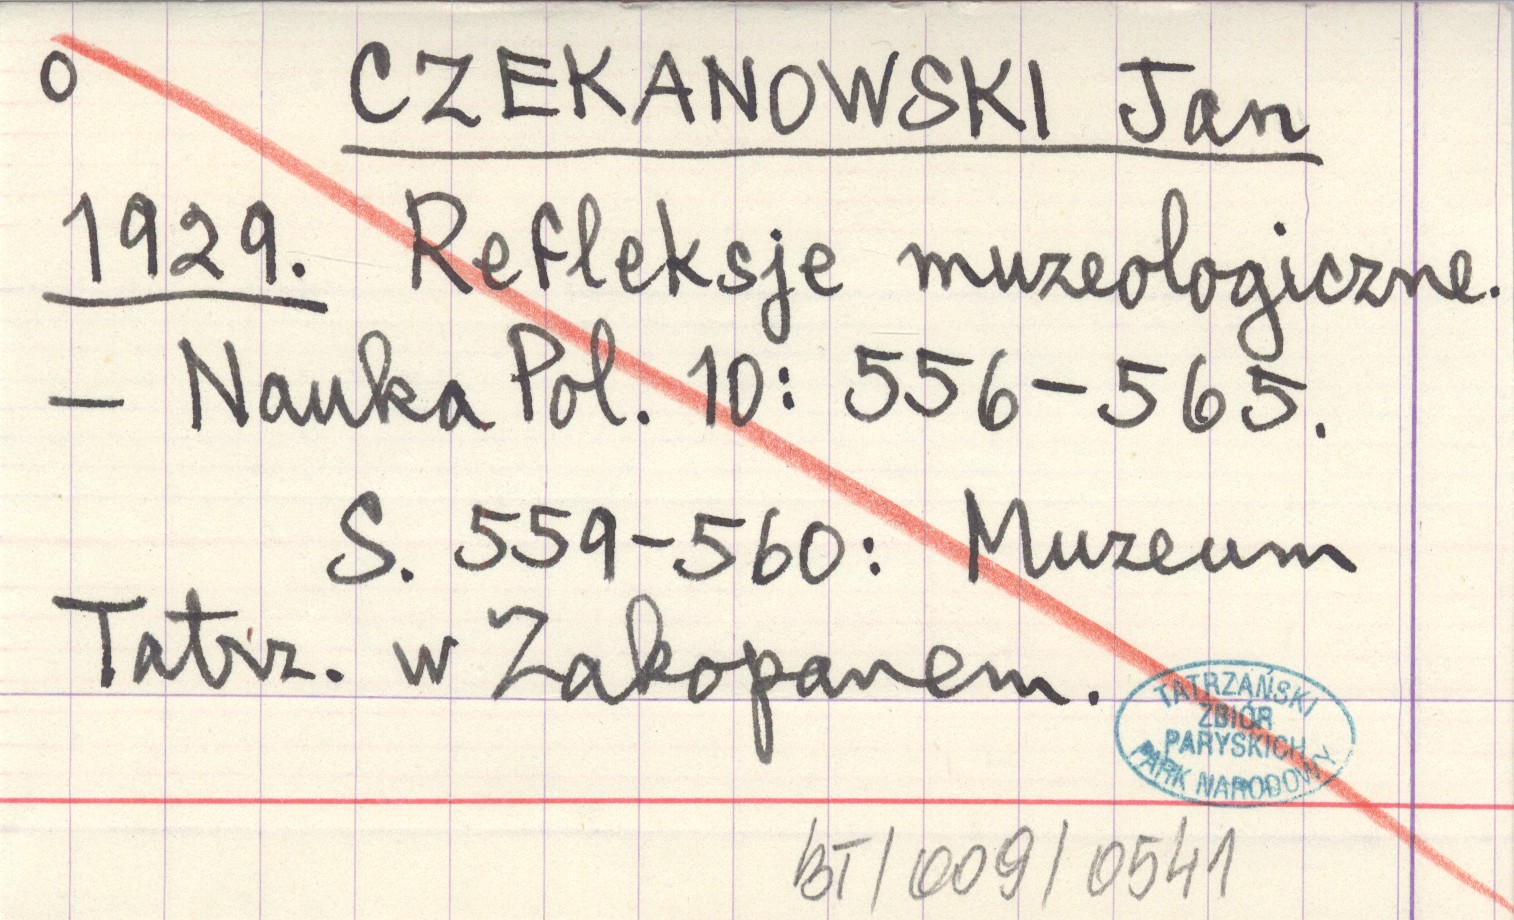 o CZEKANOWSKI Jan
1929. Refleksje muzeologiczne.
– Nauka Pol. 10: 556–565.
S. 559–560: Muzeum
Tatrz. w Zakopanem.
TATRZAŃSKI
ZBIÓR
PARYSKICH
PARK NARODOWY
BT/009/0541